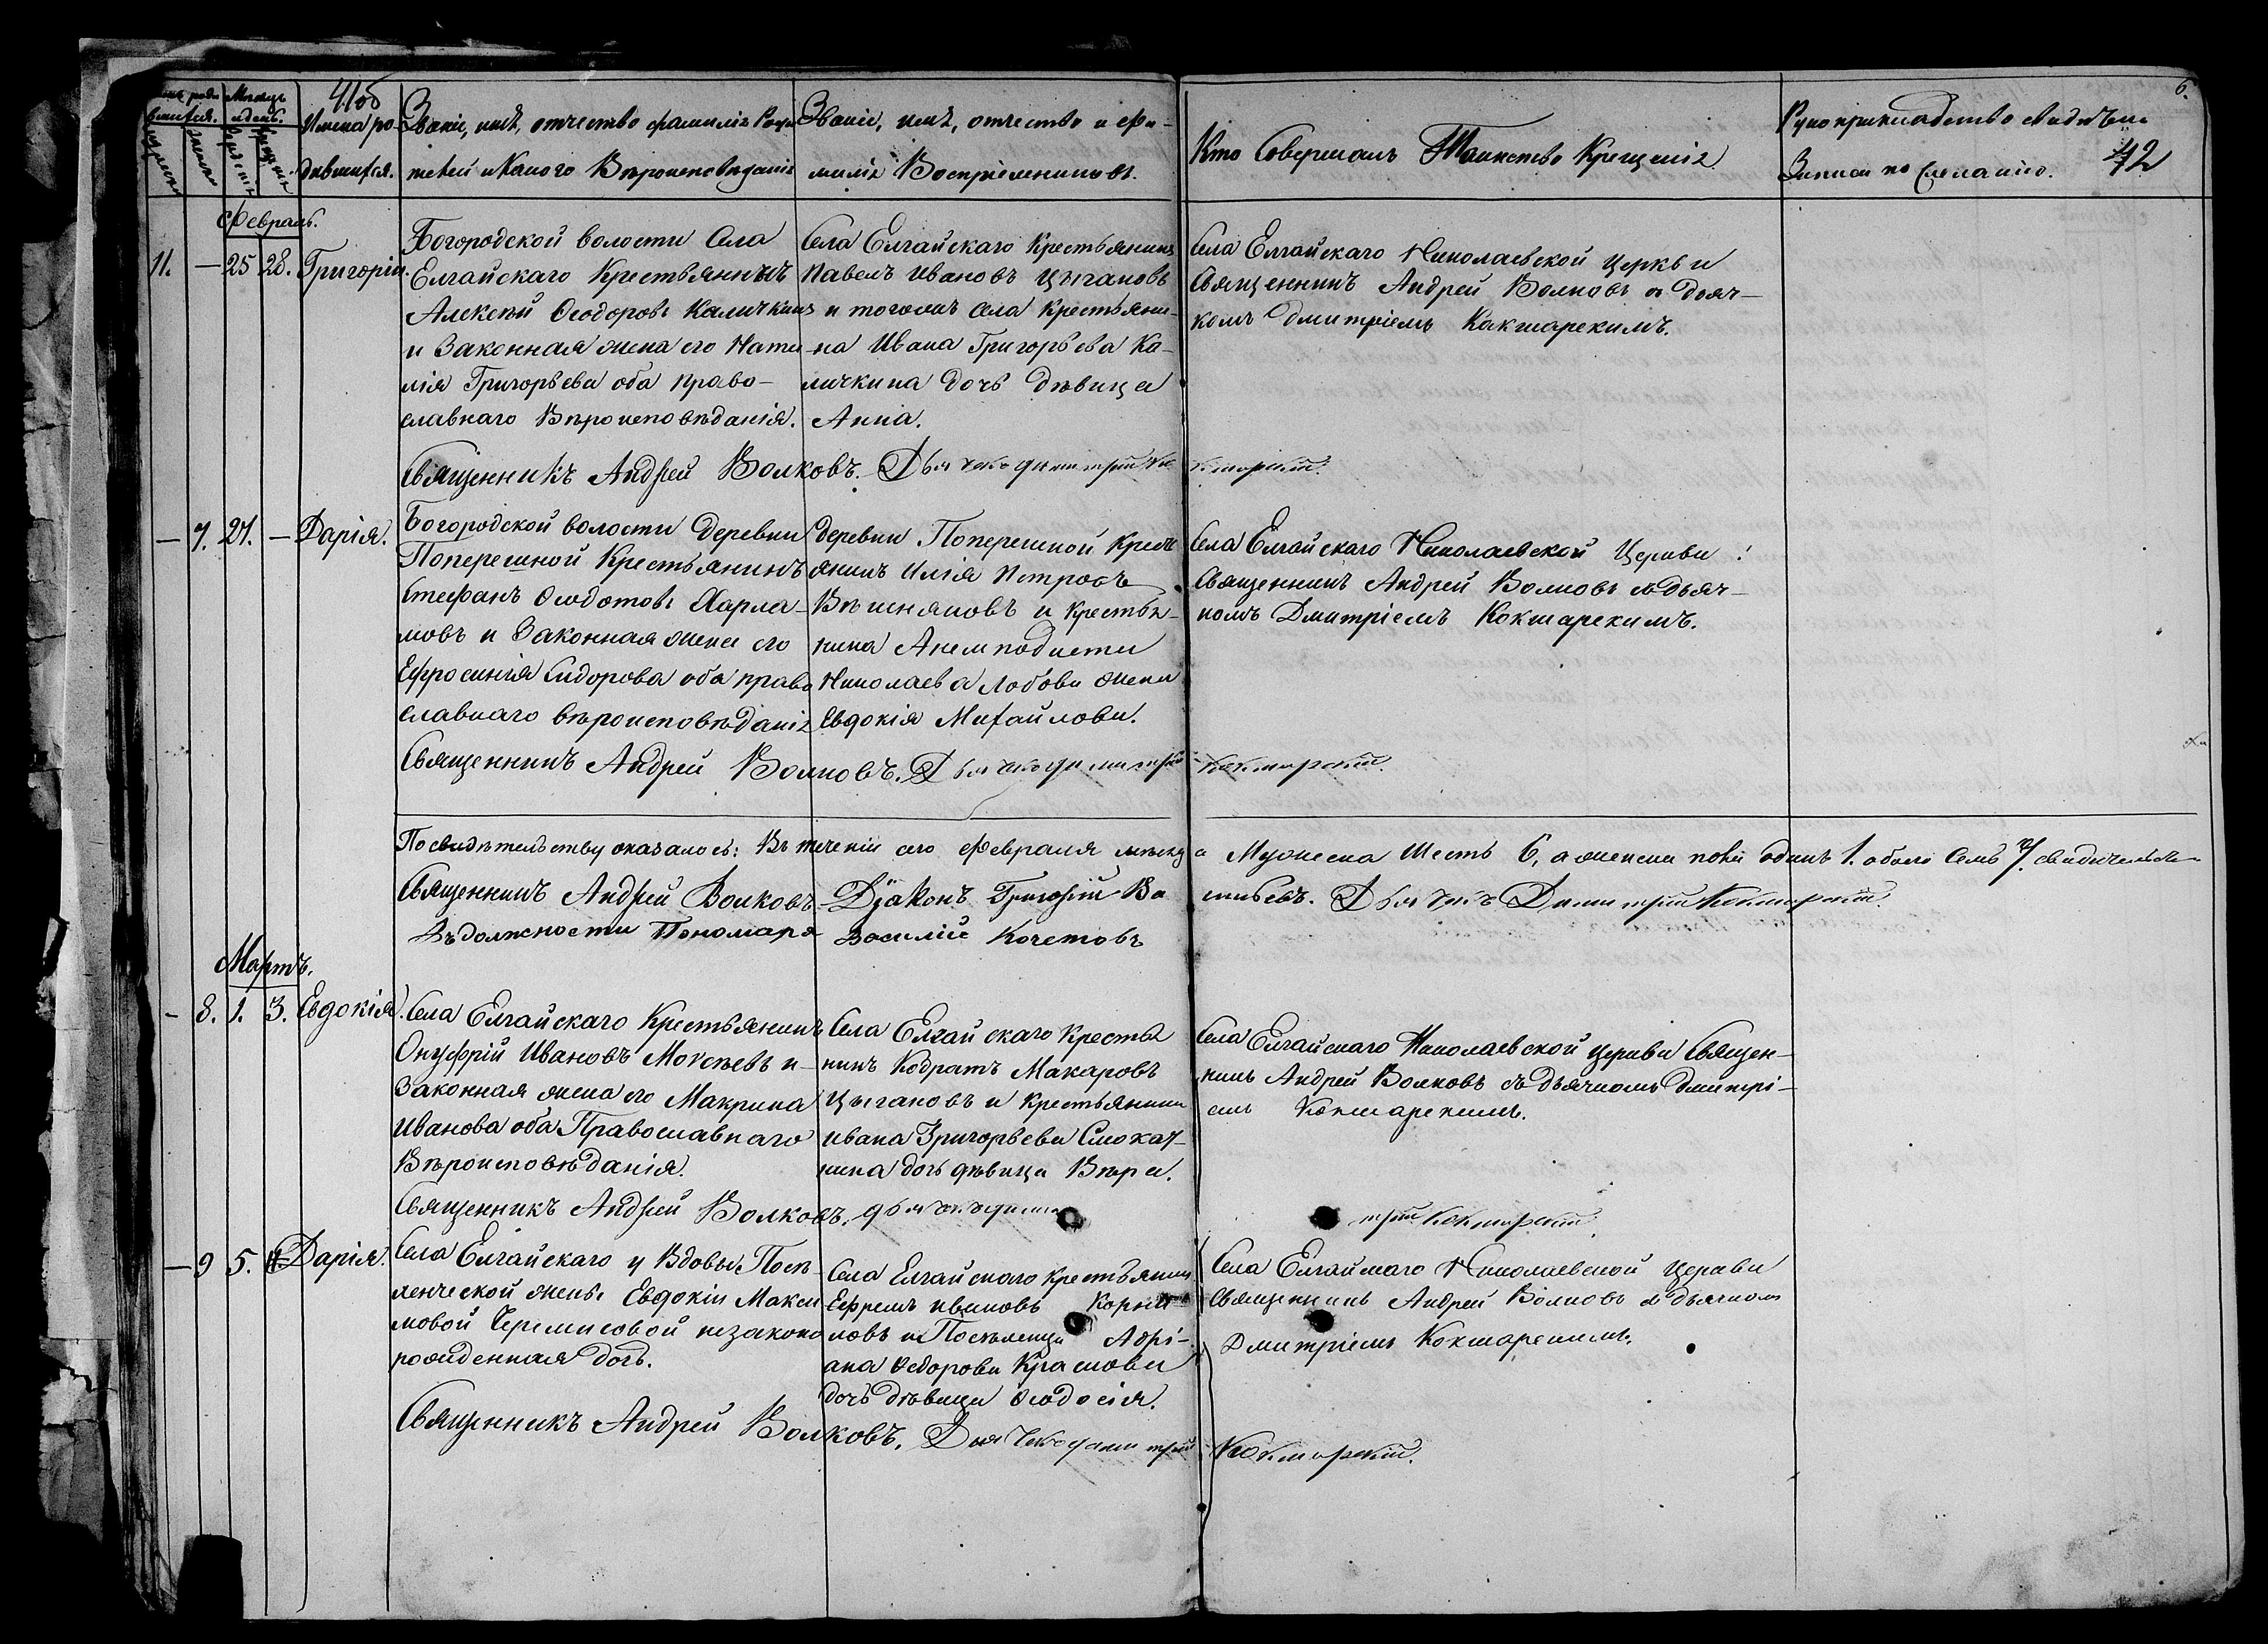 41об
6.
42
Мѣсяцъ и день.
Имена родившихся.
Званіе, имя, отчество фамилія Родителей и Какого Вѣроисповѣданія
Званіе, имя, отчество и фамилія Воспріемниковъ.
Кто Совершалъ Таинство Крещенія
Рукоприкладство свидѣтелей
Записи по желанію.
Февраль.
11. — 25 28. Григорій.
Богородской волости Села
Елгайскаго Крестьянинъ
Алексѣй Ѳеодоровъ Каличкинъ
и Законная жена его Ната-
лія Григорьева оба право-
славнаго Вѣроисповѣданія.
Села Елгайскаго Крестьянинъ
Павелъ Ивановъ Цыгановъ
и тогоже села Крестьяни-
на Ивана Григорьева Ка-
личкина дочь дѣвица
Анна.
Села Елгайскаго Николаевской церкви
Священникъ Андрей Волковъ съ дьяч-
комъ Дмитріемъ Кокшарскимъ.
Священникъ Андрей Волковъ. Дьячекъ Димитрій Кокшарскій.
— 7. 27. — Дарія.
Богородской волости Деревни
Поперешной Крестьянинъ
Стефанъ Ѳеодотовъ Харла-
мовъ и Законная жена его
Ефросинія Сидорова оба право
славнаго вѣроисповѣданія
Деревни Поперешной Кресть
янинъ Илія Петровъ
Вѣшняковъ и Крестья-
нина Анемподиста
Николаева Лобова жена
Евдокія Михайлова.
Села Елгайскаго Николаевской Церкви
Священникъ Андрей Волковъ съ дьяч-
комъ Дмитріемъ Кокшарскимъ.
Священникъ Андрей Волковъ. Дьячекъ Димитрій Кокшарскій.
По свидѣтельству оказалось: Въ теченіи сего Февраля мѣсяца Мужеска Шесть 6, а женска пола одинъ 1. обоего Семь 7.
Священникъ Андрей Волковъ Діаконъ Григорій Васильевъ. Дьячекъ Димитрій Кокшарскій.
Въ должности Пономаря Василій Кочетовъ
Мартъ.
- 8. 1. 3. Евдокія.
Села Елгайскаго Крестьянинъ
Онуфрій Ивановъ Моисѣевъ и
Законная жена его Макрина
Иванова оба Православнаго
Вѣроисповѣданія.
Села Елгайскаго Крестья
нинъ Кодратъ Макаровъ
Цыгановъ и крестьянина
Ивана Григорьева
дочь дѣвица Вѣра.
Села Елгайскаго Николаевской церкви Священ-
никъ Андрей Волковъ съ дьячкомъ Дмитрі-
емъ Кокшарскимъ.
Священникъ Андрей Волковъ. Дьячекъ Димитрій Кокшарскій.
— 9 5. Дарія.
Села Елгайскаго у Вдовы Посе-
ленческой жены Евдокіи Макси
мовой Черемисовой незаконо
рожденная дочь.
Села Елгайскаго Крестьянинъ
Ефремъ Ивановъ Корни
ловъ и Поселенца Адрі-
ана Ѳедорова Краснова
дочь дѣвица Ѳеодосія.
Села Елгайскаго Николаевской Церкви
Священникъ Андрей Волковъ съ дьячкомъ
Дмитріемъ Кокшарскимъ.
Священникъ Андрей Волковъ. Дьячекъ Димитрій Кокшарскій.